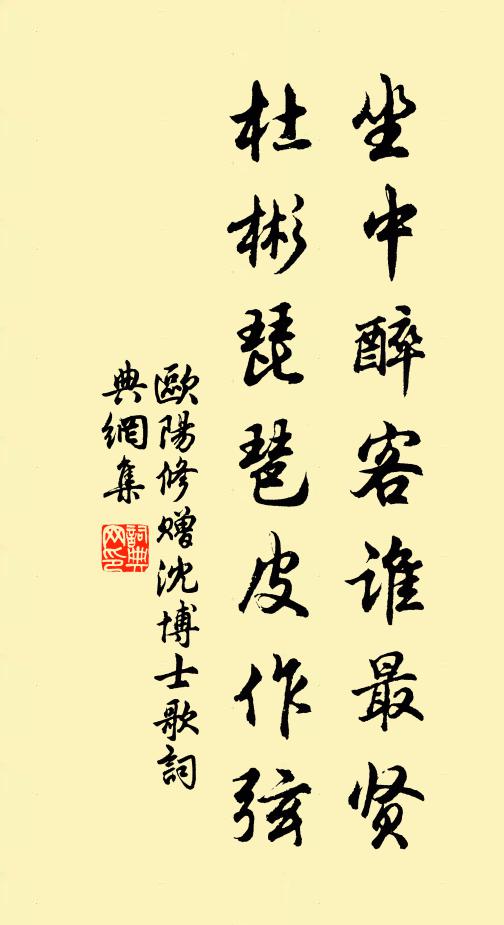 坐中醉客谁最贤
杜彬琵琶皮作弦
歐陽修贈沈博士歌詞
典網集
詞典網印